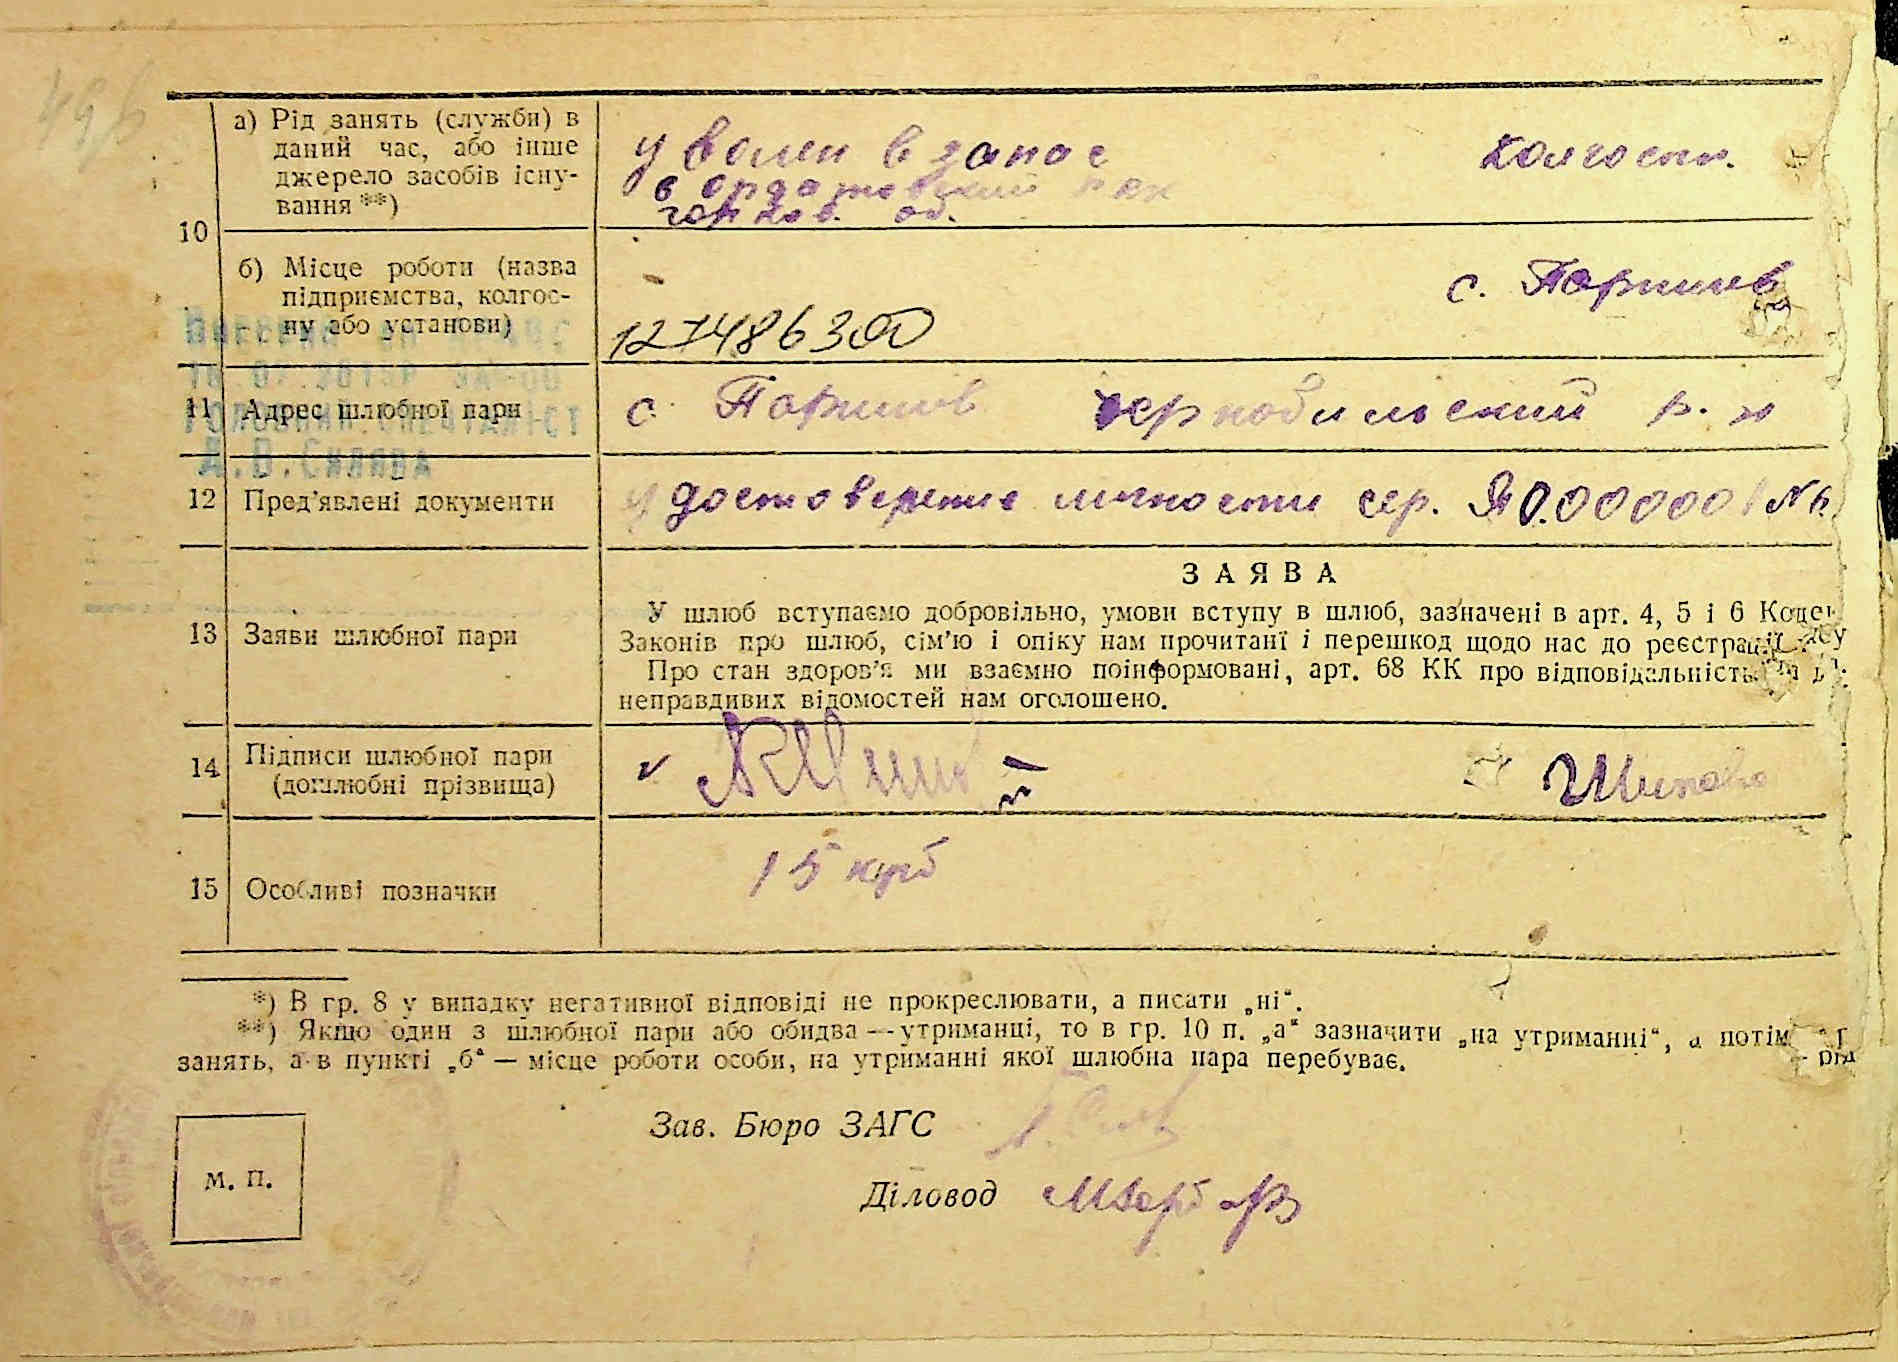 а) Рід занять (служби) в
даний час, або інше
джерело засобів існу-
вання **)
увол в запас
в Ордатовский
горков. об.
колгосп.
10
б) Місце роботи (назва
підприємства, колгос-
пу або установи)
127486300
с. Паришев
11 Адрес шлюбної пари
с. Паришев Чернобильский р. н
12 Пред'явлені документи
удостоверение личности сер. ЯО.000001 №
13 Заяви шлюбної пари
ЗАЯВА
У шлюб вступаємо добровільно, умови вступу в шлюб, зазначені в арт. 4, 5 і 6 Кодек
Законів про шлюб, сім'ю і опіку нам прочитані і перешкод щодо нас до реєстрації
Про стан здоров'я ми взаємно поінформовані, арт. 68 КК про відповідальність
неправдивих відомостей нам оголошено.
14 Підписи шлюбної пари
(дошлюбні прізвища)
15 Особливі позначки
15 крб
*) В гр. 8 у випадку негативної відповіді не прокреслювати, а писати „ні“.
**) Якщо один з шлюбної пари або обидва — утриманці, то в гр. 10 п. „а“ зазначити „на утриманні“, а потім рід
занять, а в пункті „б“ — місце роботи особи, на утриманні якої шлюбна пара перебуває.
Зав. Бюро ЗАГС
Діловод
м. п.